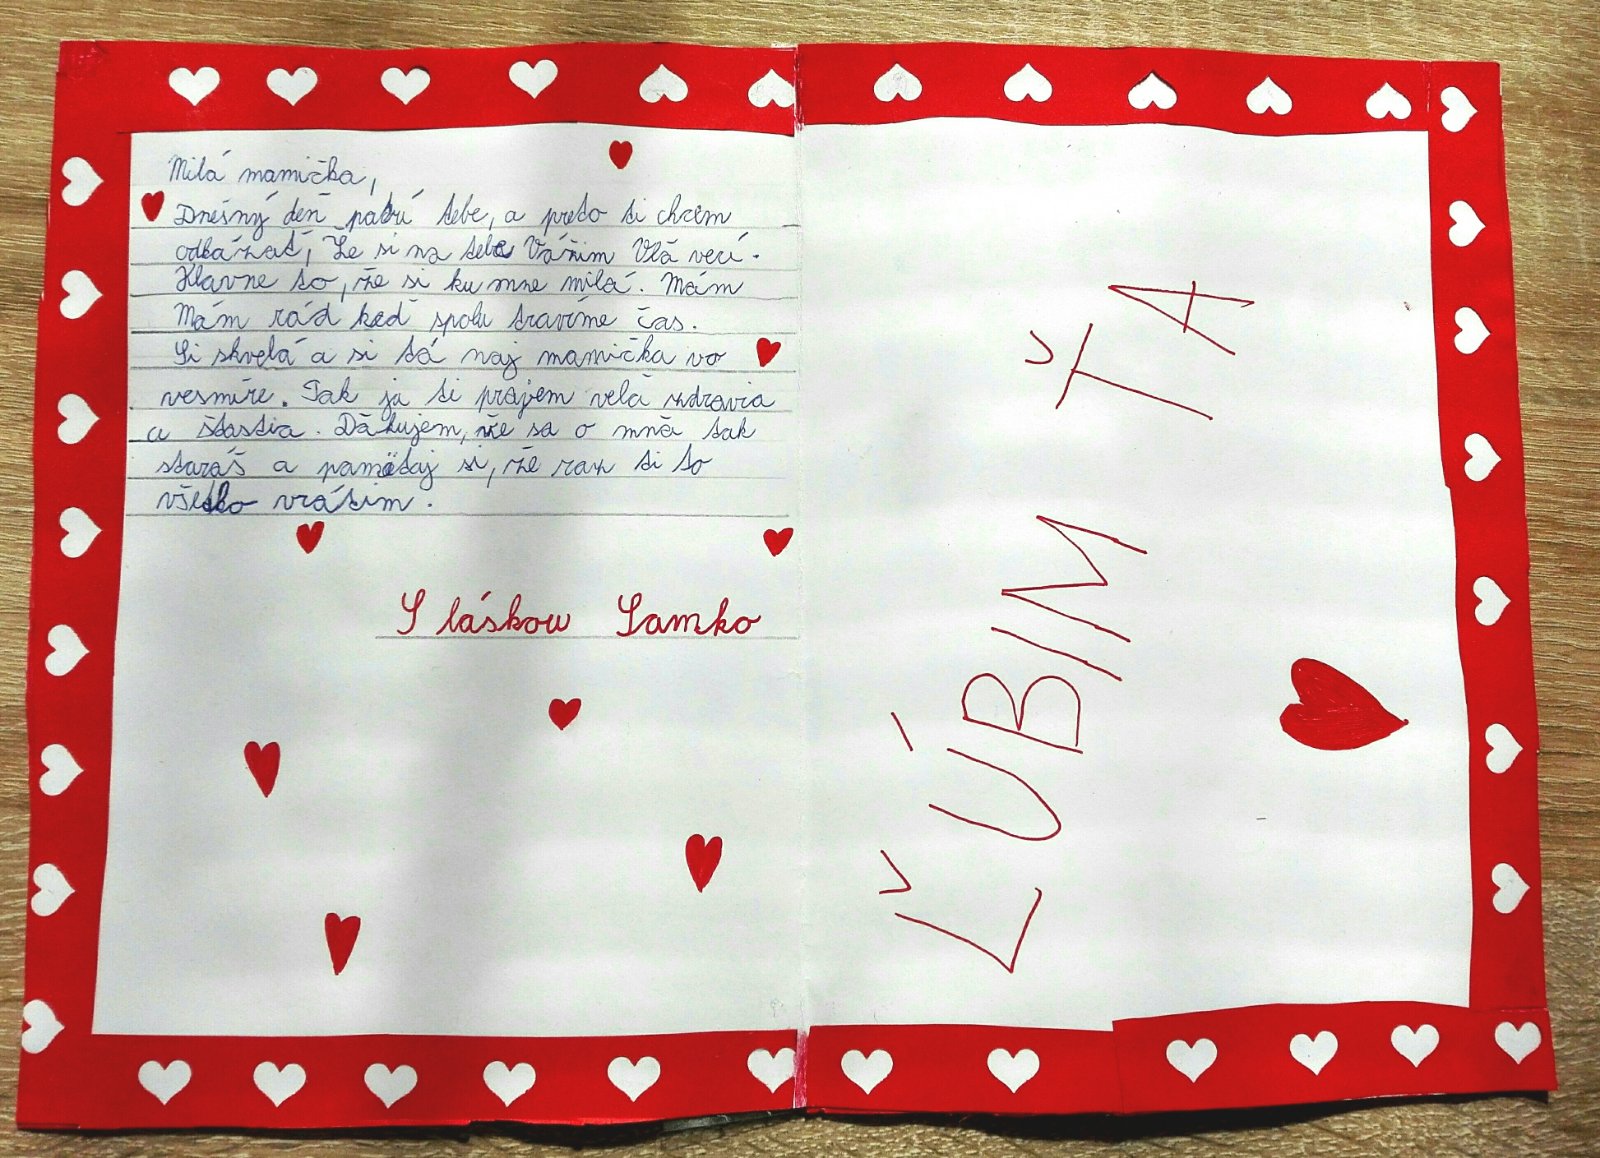 Milá mamička,
Dnešný deň patrí tebe, a preto ti chcem
odkázať, Že si na tebe Vážim Vľa vecí.
Hlavne to, že si ku mne milá. Mám
Mám rád keď spolu travíme čas.
Si skvelá a si tá naj mamička vo
vesmíre. Tak ja ti prajem veľa zdravia
a štastia. Ďakujem, že sa o mňa tak
staráš a pamätaj si, že raz ti to
všetko vrátim.
S láskou Samko
ĽÚBIM ŤA